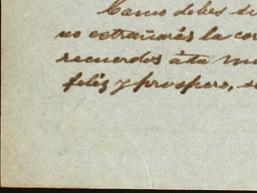 Como debes s
no extrañarás la cor
recuerdos á tu m
feliz y prospero, s